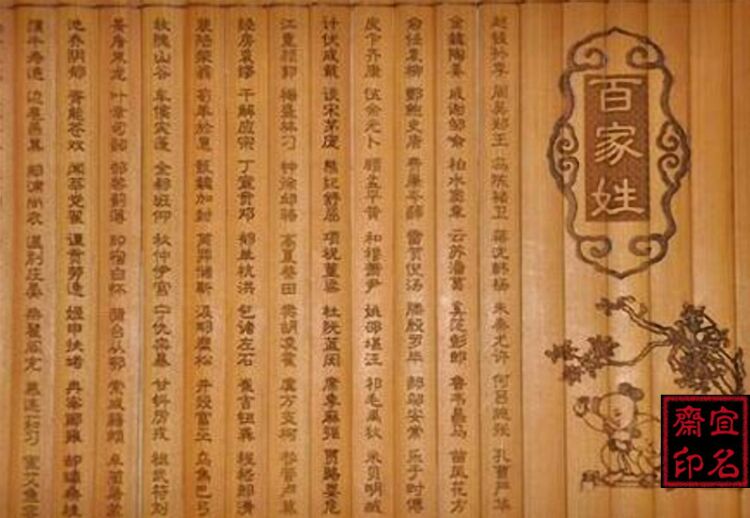 百家姓
赵钱孙李 周吴郑王 冯陈褚卫 蒋沈韩杨 朱秦尤许 何吕施张 孔曹严华
金魏陶姜 戚谢邹喻 柏水窦章 云苏潘葛 奚范彭郎 鲁韦昌马 苗凤花方
俞任袁柳 酆鲍史唐 费廉岑薛 雷贺倪汤 滕殷罗毕 郝邬安常 乐于时傅
皮卞齐康 伍余元卜 顾孟平黄 和穆萧尹 姚邵堪汪 祁毛禹狄 米贝明臧
计伏成戴 谈宋茅庞 熊纪舒屈 项祝董梁 杜阮蓝闵 席季麻强 贾路娄危
江童颜郭 梅盛林刁 钟徐邱骆 高夏蔡田 樊胡凌霍 虞万支柯 昝管卢莫
经房裘缪 干解应宗 丁宣贲邓 郁单杭洪 包诸左石 崔吉钮龚 程嵇邢滑
裴陆荣翁 荀羊於惠 甄麴加封 芮羿储靳 汲邴糜松 井段富巫 乌焦巴弓
牧隗山谷 车侯宓蓬 全郗班仰 秋仲伊宫 宁仇栾暴 甘钭厉戎 祖武符刘
景詹束龙 叶幸司韶 郜黎蓟薄 印宿白怀 蒲台从鄂 索咸籍赖 卓蔺屠蒙
池乔阴郁 胥能苍双 闻莘党翟 谭贡劳逄 姬申扶堵 冉宰郦雍 却璩桑桂
濮牛寿通 边扈燕冀 郏浦尚农 温别庄晏 柴瞿阎充 慕连茹习 宦艾鱼容
宜名齋印